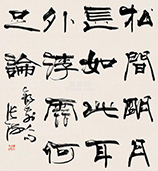 松間明月
長如此耳
外浮雲何
足論